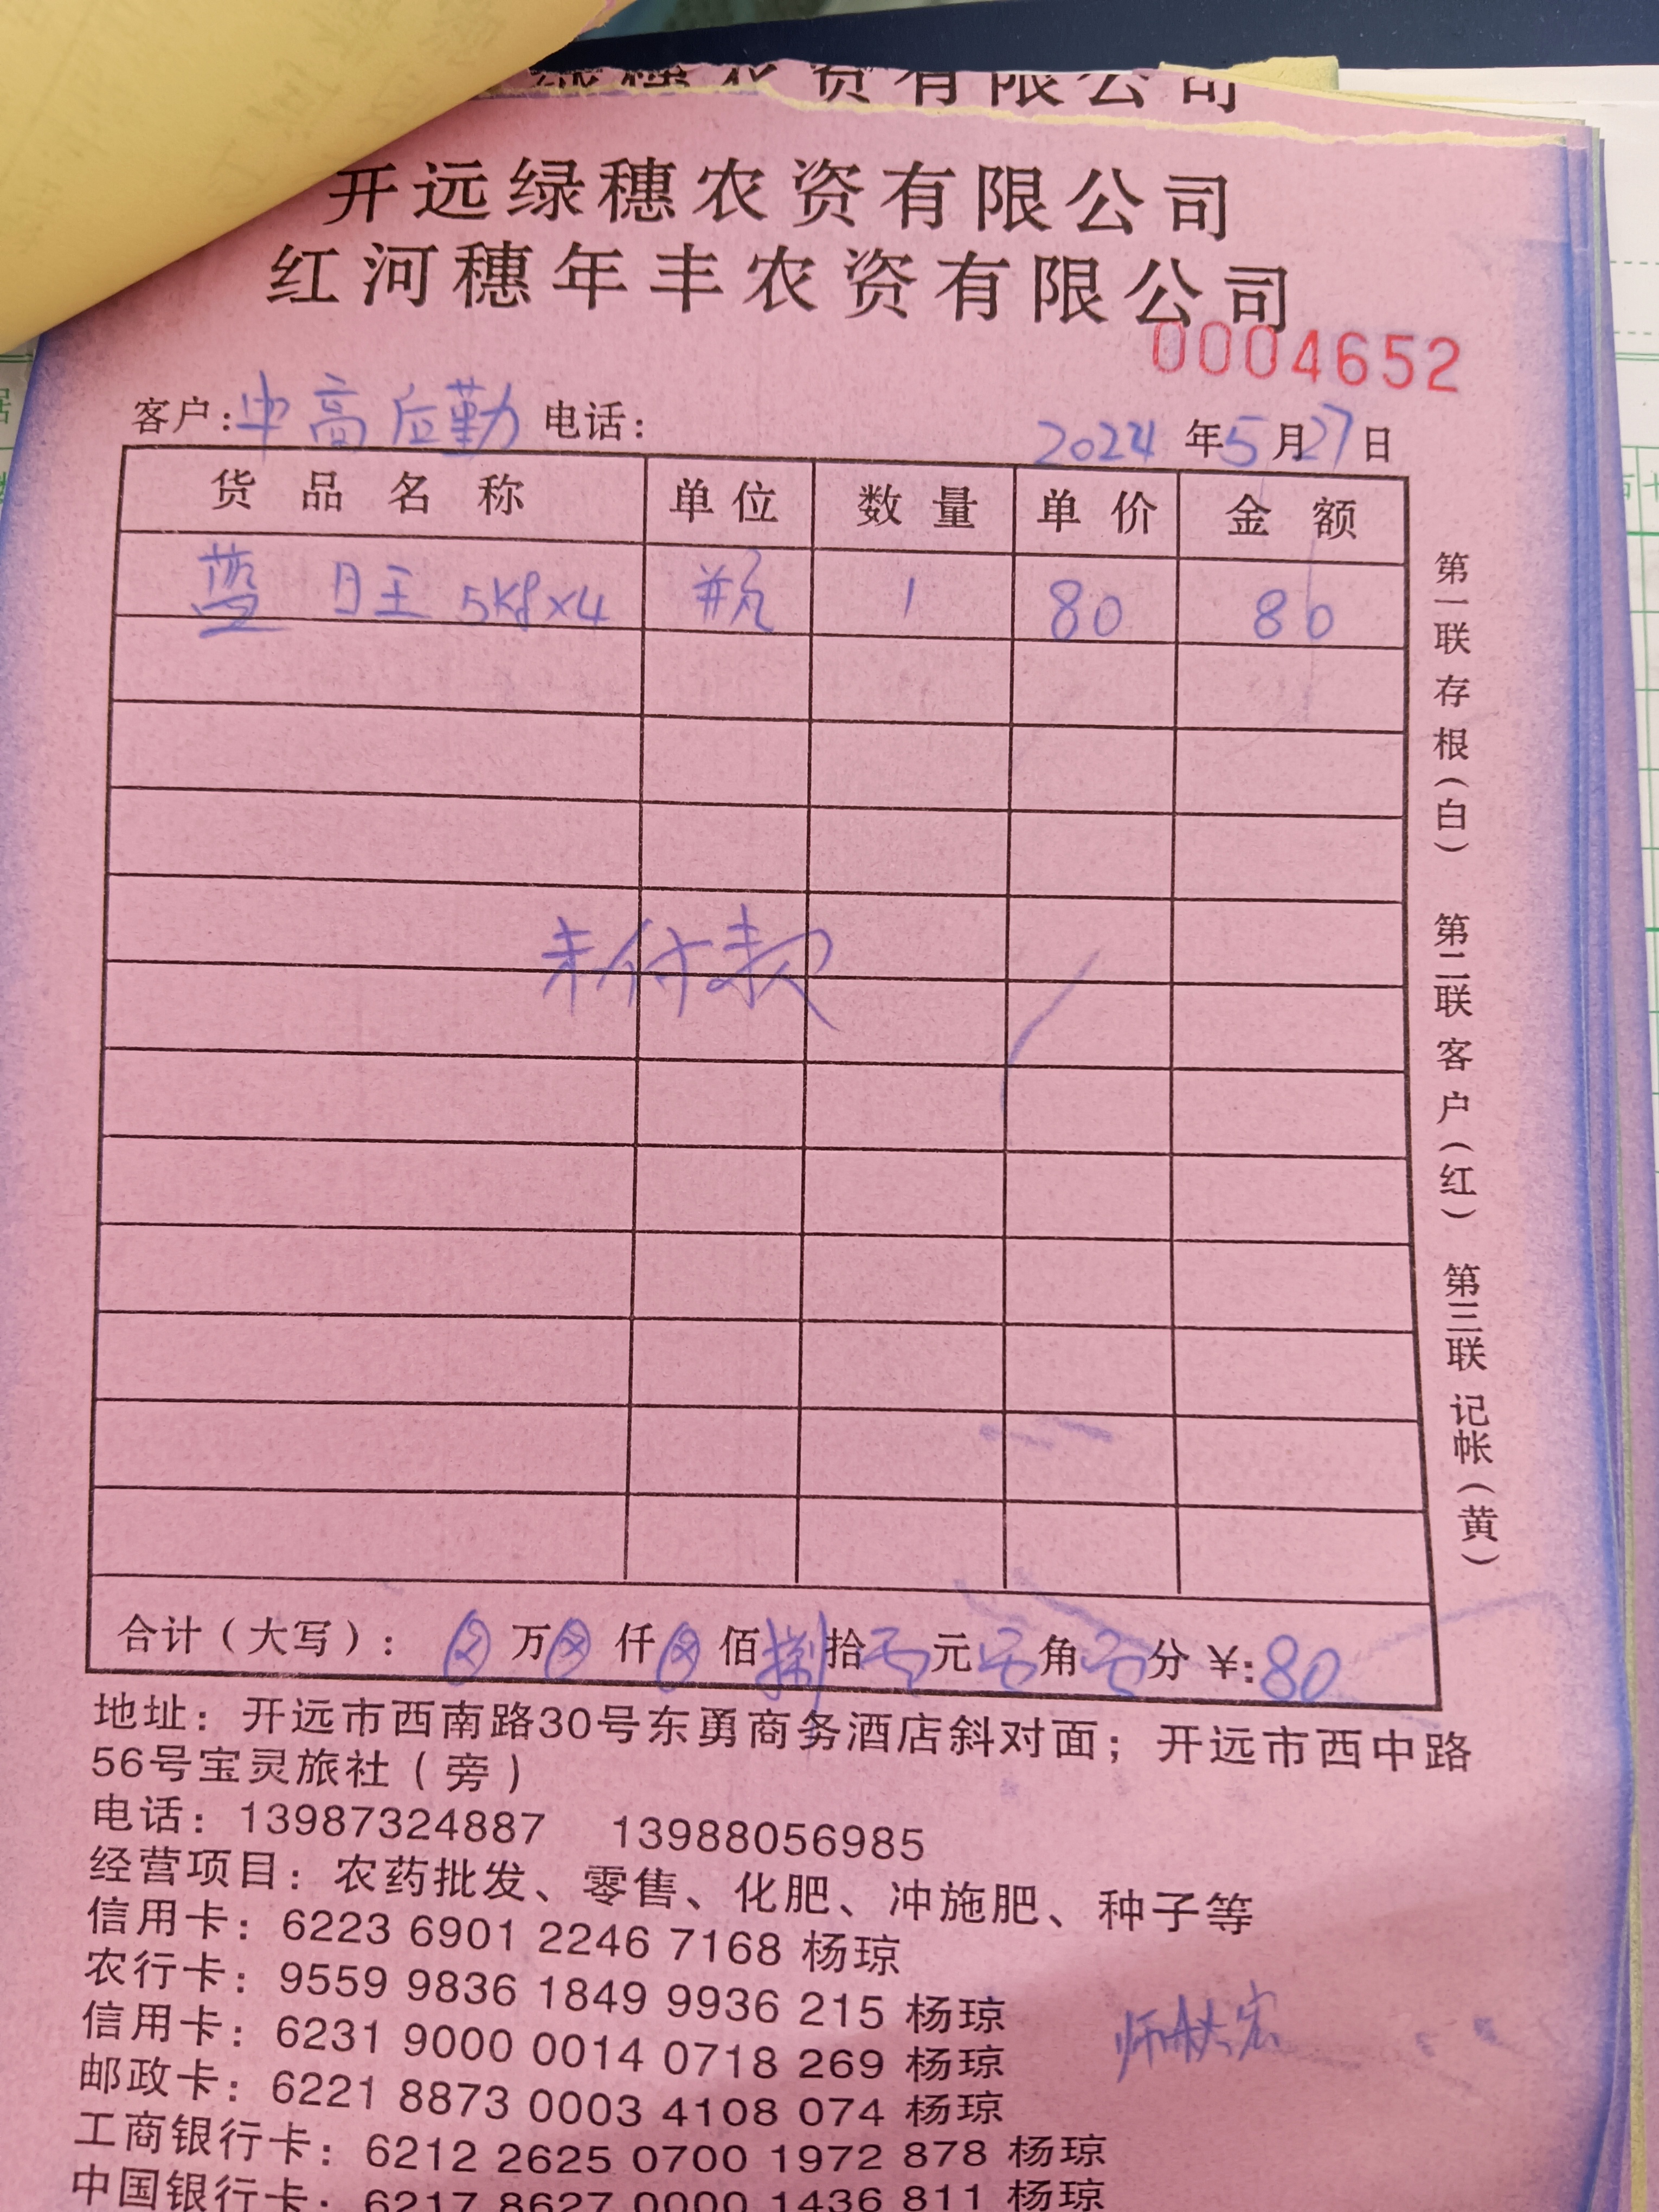 农资有限公司
开远绿穗农资有限公司
红河穗年丰农资有限公司
0004652
客户:中高后勤 电话: 2024年5月27日
货品名称 单位 数量 单价 金额
蓝 月王 5Kg×4 瓶 1 80 80
未付款
合计(大写): ⊗万⊗仟⊗佰捌拾元角分 ¥:80
地址:开远市西南路30号东勇商务酒店斜对面;开远市西中路
56号宝灵旅社(旁)
电话:13987324887 13988056985
经营项目:农药批发、零售、化肥、冲施肥、种子等
信用卡:6223 6901 2246 7168 杨琼
农行卡:9559 9836 1849 9936 215 杨琼
信用卡:6231 9000 0014 0718 269 杨琼
邮政卡:6221 8873 0003 4108 074 杨琼
工商银行卡:6212 2625 0700 1972 878 杨琼
中国银行卡:6217 8627 0000 1436 811 杨琼
第一联存根(白) 第二联客户(红) 第三联记帐(黄)